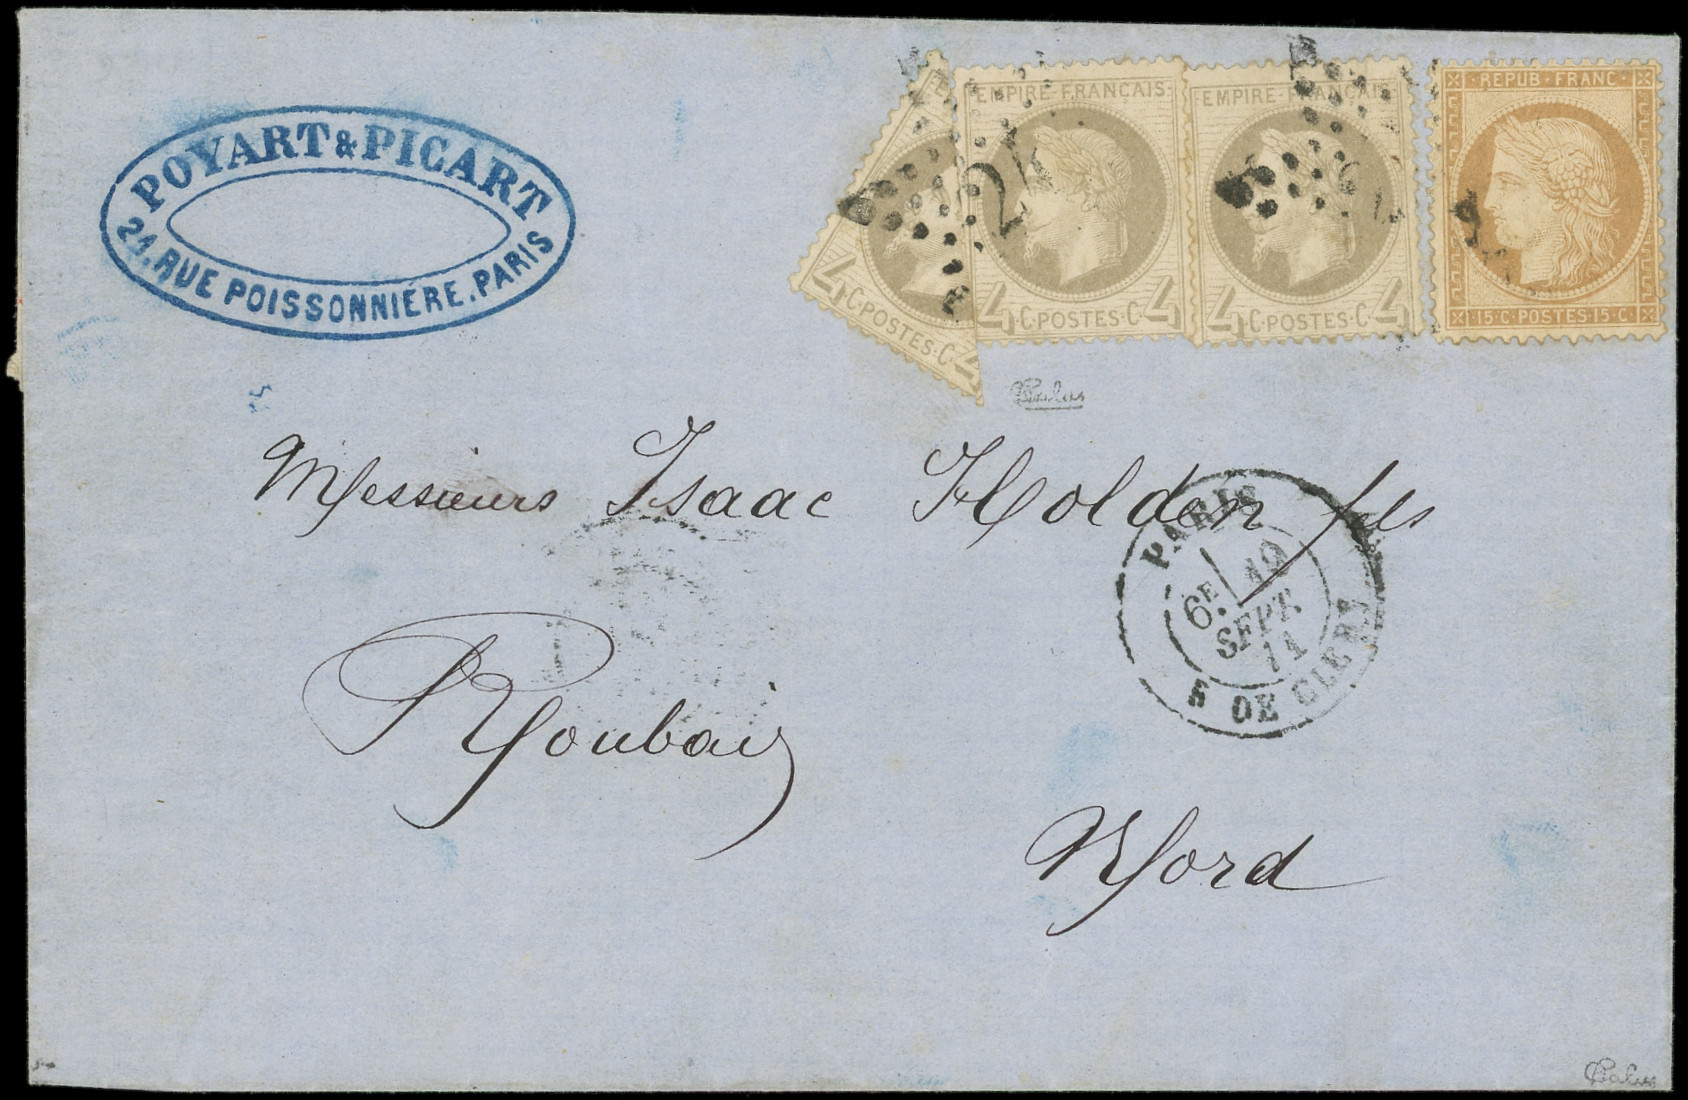 POYART & PICART
21, RUE POISSONNIÈRE, PARIS
4 C. POSTES. C 4
EMPIRE FRANÇAIS
4 C. POSTES. C 4
EMPIRE FRANÇAIS
4 C. POSTES. C 4
REPUB. FRANC.
15. C. POSTES. 15. C
24
Messieurs Isaac Holden fils
Roubaix
Nord
PARIS
6E 19
SEPT.
71
R DE CLERY
Calves